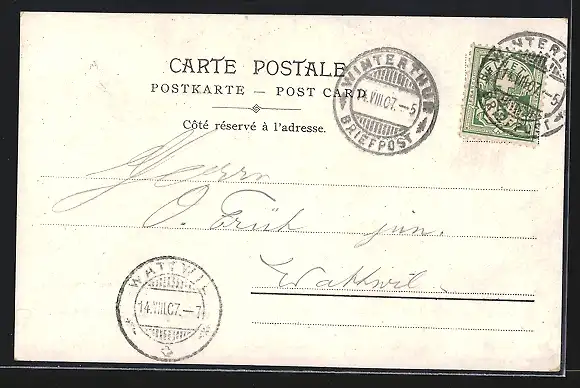 CARTE POSTALE
POSTKARTE — POST CARD
Côté réservé à l'adresse.
WINTERTHUR
14.VIII.07.-5
BRIEFPOST
Herrn
O. Früh jun.
Wattwil
WATTWIL
14.VIII.07.-7